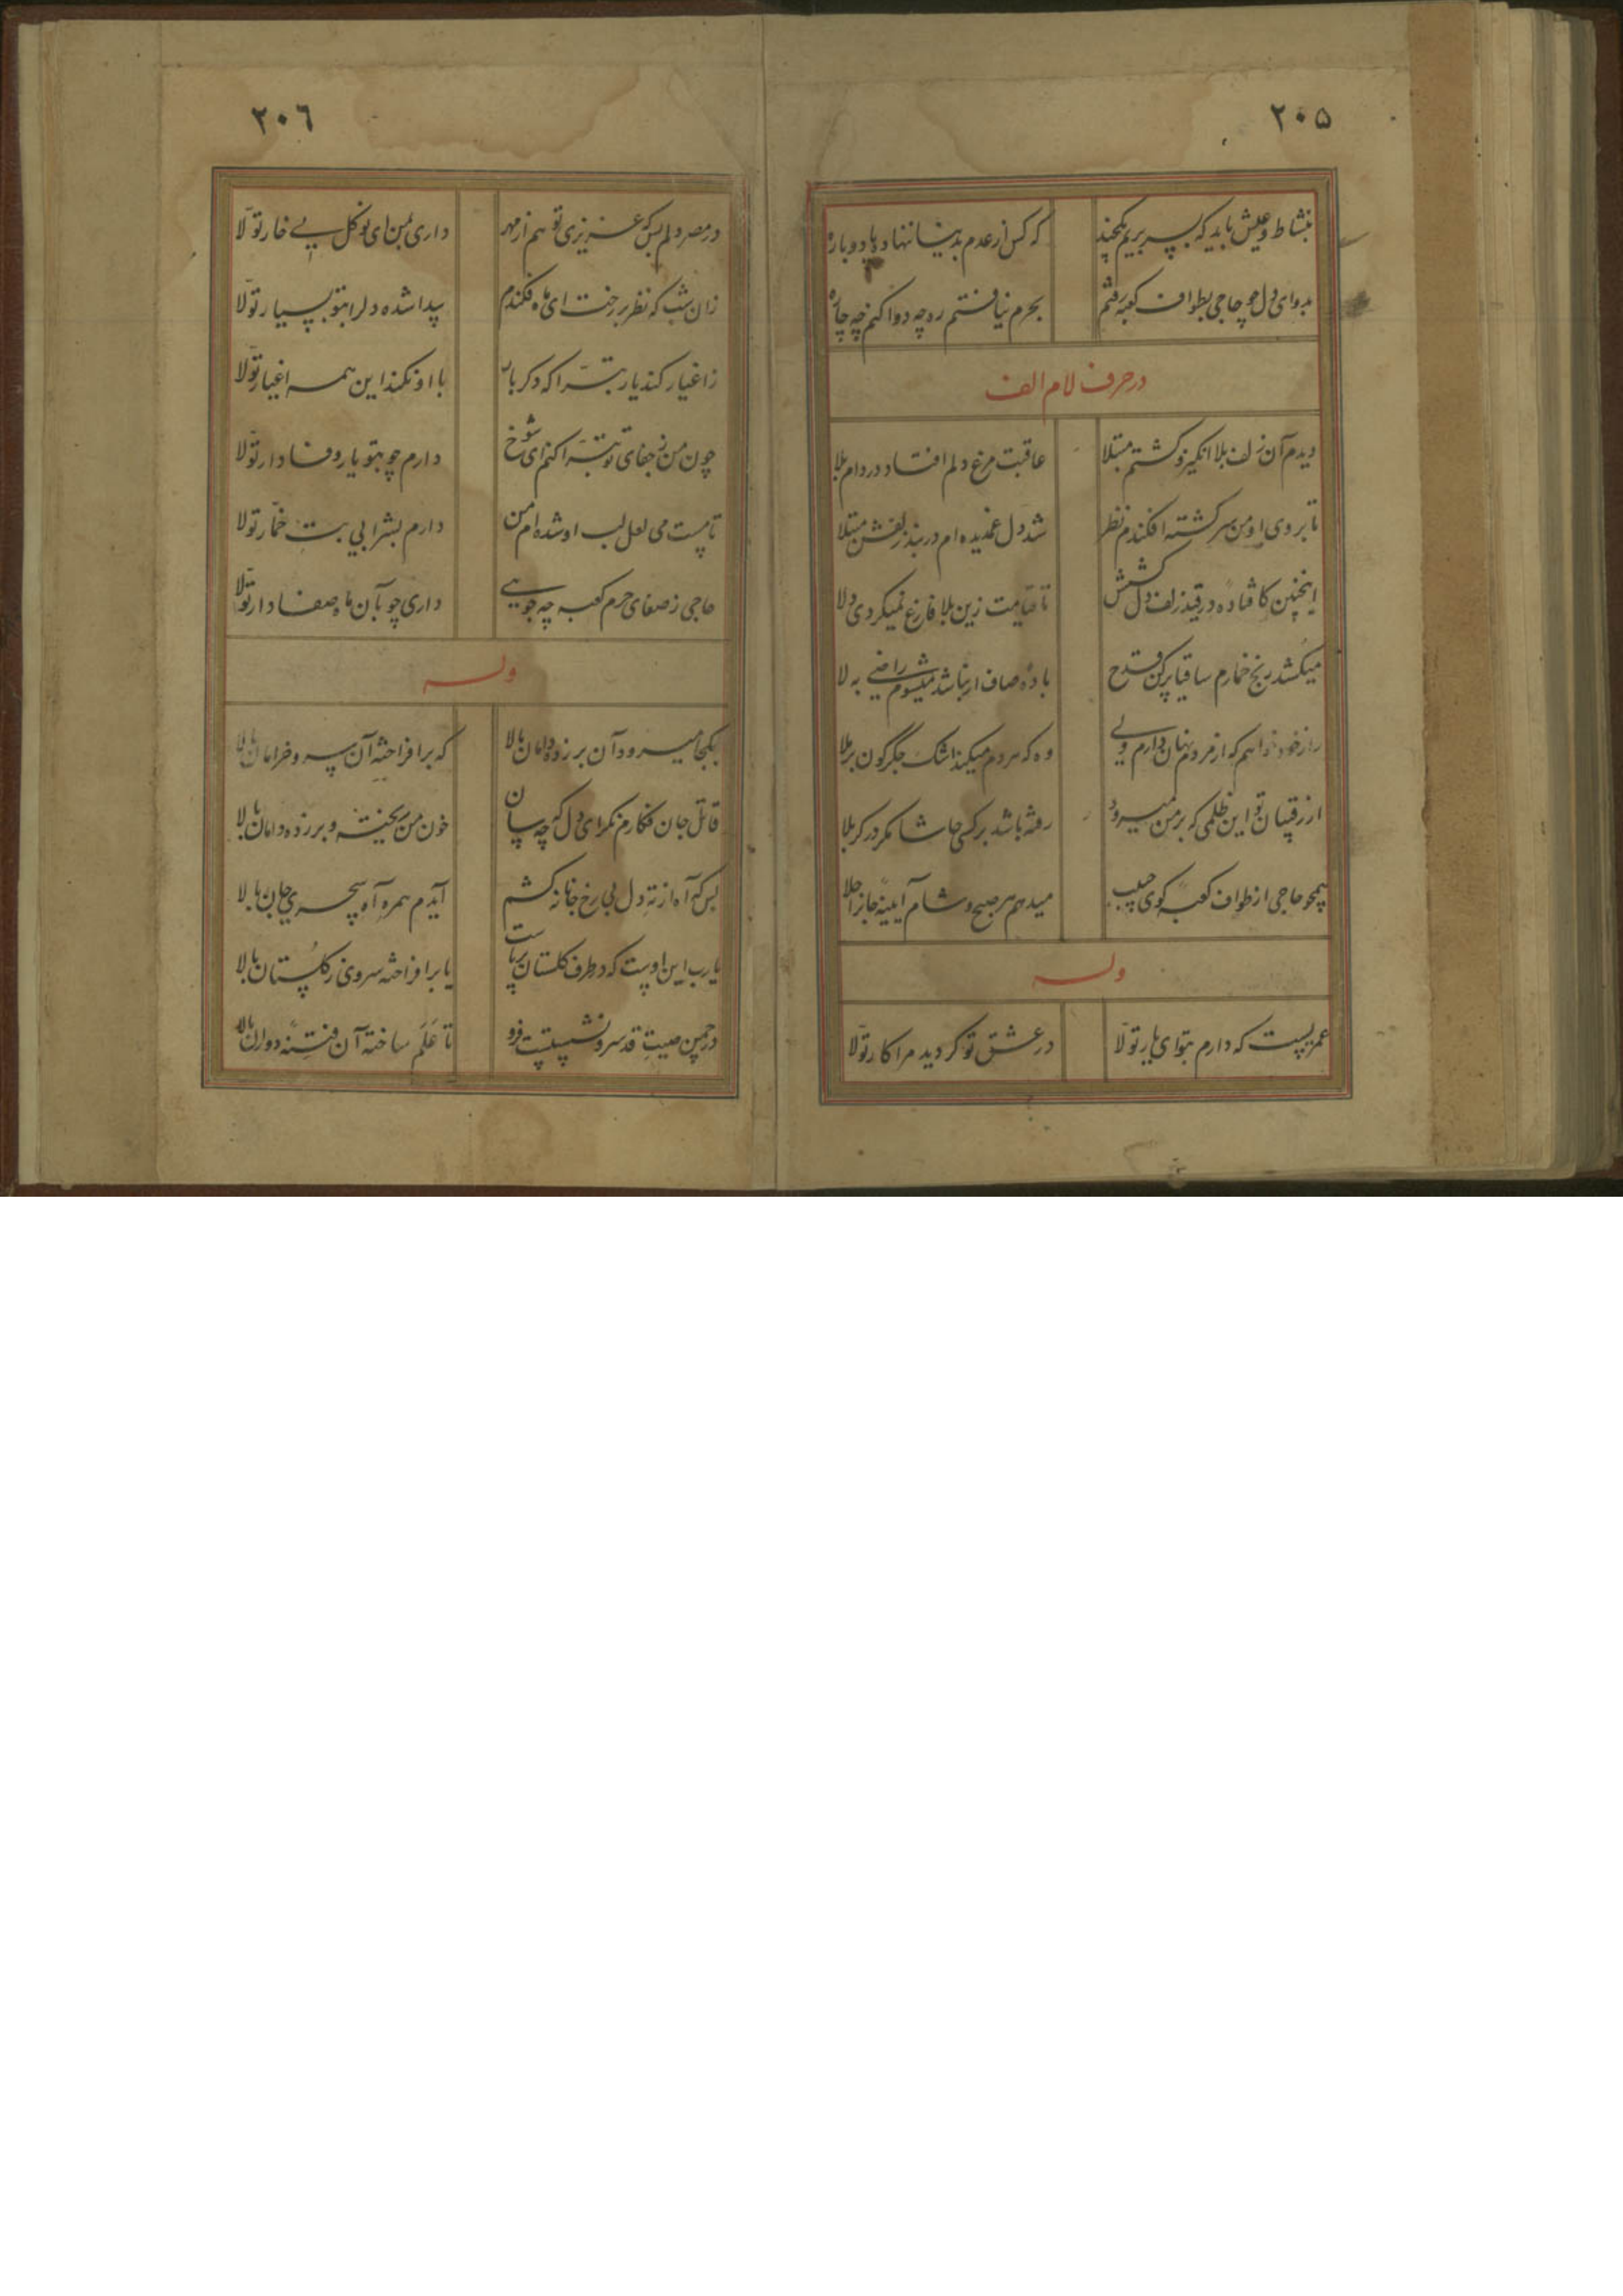 ۲۰۵
بنشاط و عیش باید که بسر بریم یکچند که کس از عدم بدینسا ننهاد پا دوباره
بدوای دل چو حاجی بطواف کعبه رفتم بحرم نیافتم ره چه دوا کنم چه چاره
در حرف لام الف
دیدم آن زلف بلا انگیز و گشتم مبتلا عاقبت مرغ دلم افتاد در دام بلا
تا بروی او من سرگشته افکندم نظر شد دل غمدیده ام در بند زلفش مبتلا
اینچنین کافتاده در قید زلف دل کشش تا قیامت زین بلا فارغ نمیگردی دلا
میکشد رنج خمارم ساقیا پر کن قدح باده صاف ار نباشد میشوم راضی به لا
راز خود خواهم که از مردم نهان دارم ولی وه که مردم میکند اشک جگرگون برملا
از رقیبان تو این ظلمی که بر من میرود رفته باشد بر کسی حاشا مگر در کربلا
همچو حاجی از طواف کعبه کوی حبیب میدهم هر صبح و شام آیینه جانرا جلا
وله
عمریست که دارم بتو ای یار تولا در عشق تو گردید مرا کار تولا
۲۰۶
در مصر دلم بس که عزیزی تو هم از مهر داری بمن ای نوگل بی خار تولا
زان شب که نظر بر رخت ای ماه فکندم پیدا شده دلرا بتو بسیار تولا
ز اغیار کند یار تبرا که دگر بار با او نکند این همه اغیار تولا
چون من ز جفای تو تبرا کنم ای شوخ دارم چو بتو یار وفادار تولا
تا مست می لعل لب او شده ام من دارم بشرابی بت خمار تولا
حاجی ز صفای حرم کعبه چه جویی داری چو بآن ماه صفادار تولا
وله
بکجا میرود آن بر زده دامان بالا که برافراخته آن سرو خرامان بالا
قاتل جان فکارم نگر ای دل که چه سان خون من ریخته و بر زده دامان بالا
بس که آه از ته دل بی رخ جانانه کشم آیدم همره آه سحری جان بالا
یارب این اوست که در طرف گلستان برپاست یا برافراخته سروی ز گلستان بالا
در چمن صیت قد سرو نشستست فرو تا علم ساخته آن فتنه دوران بالا